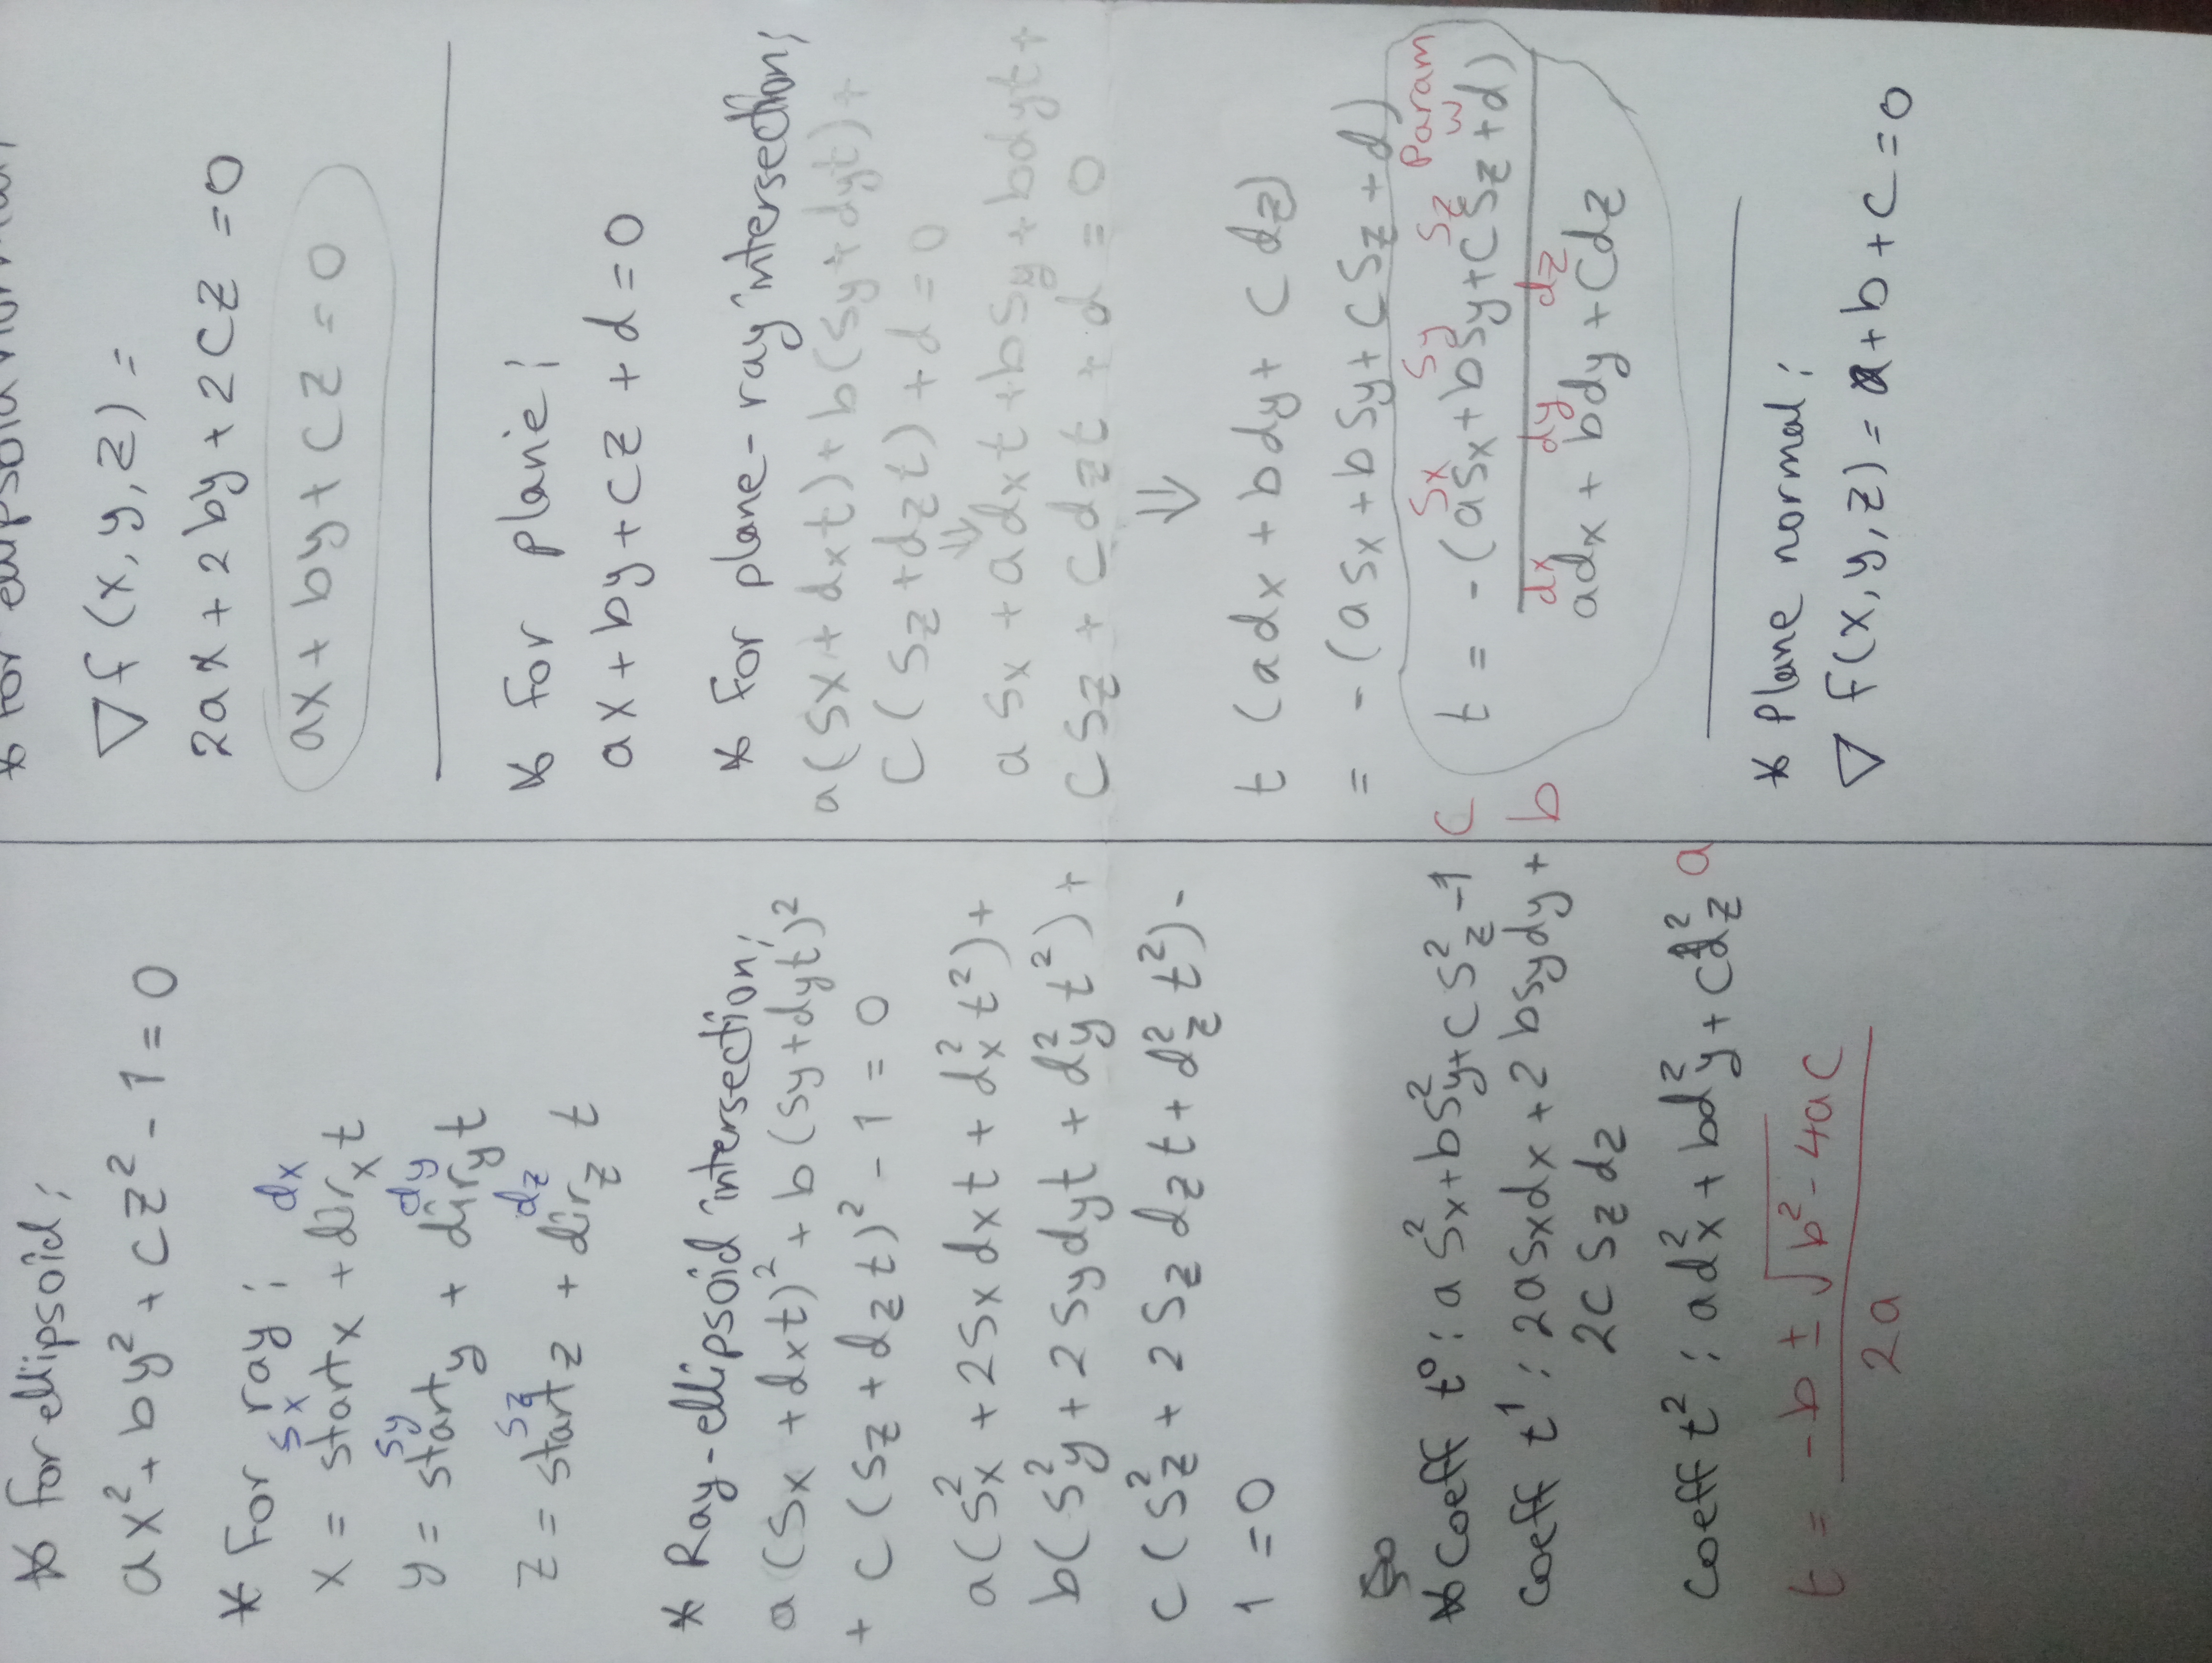 * for ellipsoid;
ax² + by² + cz² - 1 = 0
* For ray;
sx dx
x = startx + dirx t
sy dy
y = starty + diry t
sz dz
z = startz + dirz t
* Ray-ellipsoid intersection;
a (Sx + dxt)² + b (Sy + dyt)²
+ c (Sz + dzt)² - 1 = 0
a(Sx² + 2Sx dxt + dx² t²) +
b(Sy² + 2 Sy dyt + dy² t²) +
c (Sz² + 2 Sz dzt + dz² t²) -
1 = 0
* Coeff t⁰ : a Sx² + bSy² + c Sz² - 1 c
coeff t¹ : 2aSxdx + 2 bsydy + b
2c Sz dz
coeff t² : adx² + bdy² + cdz² a
t = -b ± √b² - 4ac
2a
* For ellipsoid normal;
∇f (x, y, z) =
2ax + 2by + 2cz = 0
ax + by + cz = 0
* for plane;
ax + by + cz + d = 0
* for plane-ray intersection;
a(Sx + dxt) + b(Sy + dyt) +
c(Sz + dzt) + d = 0
⇓
a Sx + adxt + bSy + bdyt +
cSz + cdzt + d = 0
⇓
t (adx + bdy + c dz)
= -(a Sx + b Sy + c Sz + d)
Sx Sy Sz Param
w
t = -(aSx + bSy + cSz + d)
dx dy dz
adx + bdy + cdz
* Plane normal;
∇ f(x, y, z) = a + b + c = 0